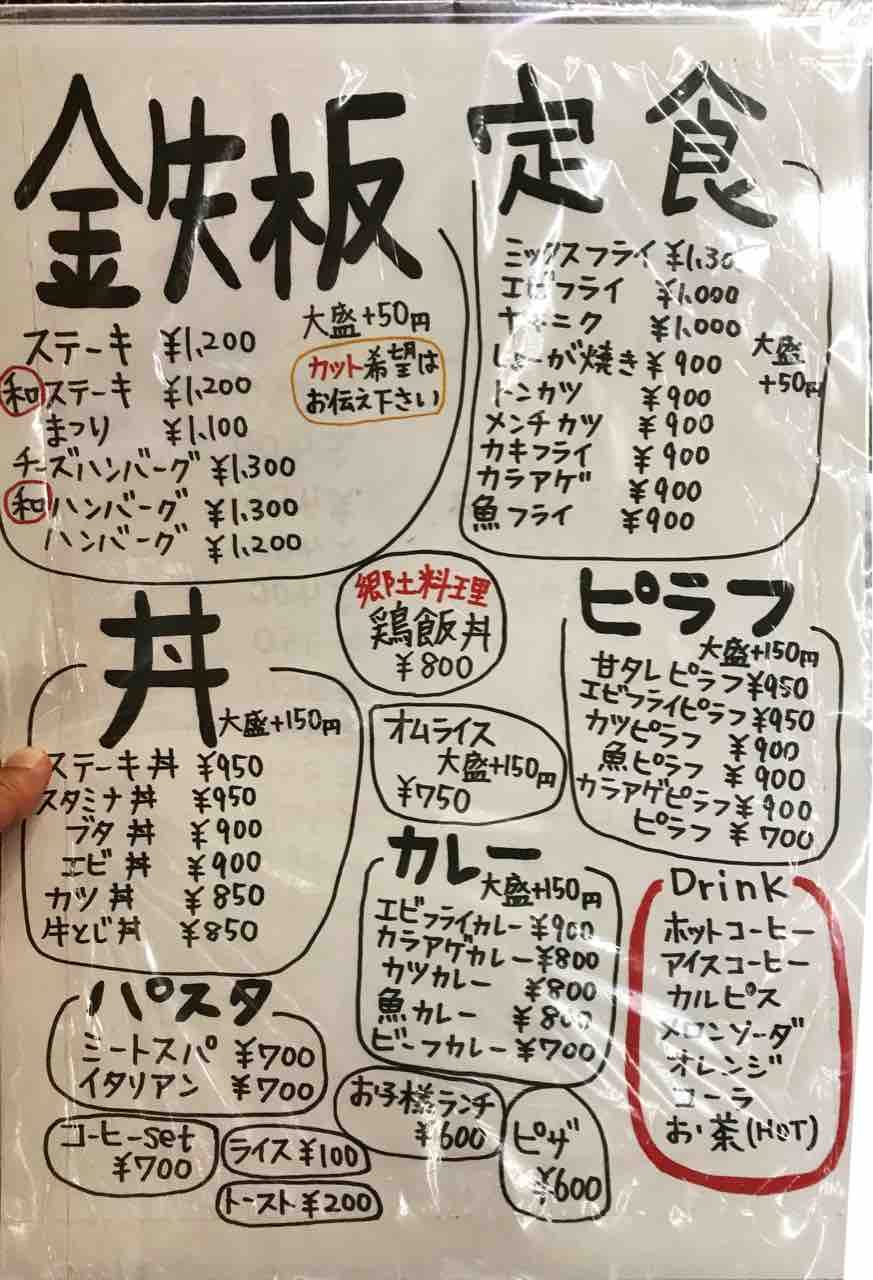 鉄板
大盛+50円
カット希望は
お伝え下さい
ステーキ ¥1,200
和ステーキ ¥1,200
まつり ¥1,100
チーズハンバーグ ¥1,300
和ハンバーグ ¥1,300
ハンバーグ ¥1,200
定食
大盛
+50円
ミックスフライ ¥1,300
エビフライ ¥1,000
ヤキニク ¥1,000
しょーが焼き ¥900
トンカツ ¥900
メンチカツ ¥900
カキフライ ¥900
カラアゲ ¥900
魚フライ ¥900
郷土料理
鶏飯丼
¥800
丼
大盛+150円
ステーキ丼 ¥950
スタミナ丼 ¥950
ブタ丼 ¥900
エビ丼 ¥900
カツ丼 ¥850
牛とじ丼 ¥850
オムライス
大盛+150円
¥750
ピラフ
大盛+150円
甘タレピラフ ¥950
エビフライピラフ ¥950
カツピラフ ¥900
魚ピラフ ¥900
カラアゲピラフ ¥900
ピラフ ¥700
カレー
大盛+150円
エビフライカレー ¥900
カラアゲカレー ¥800
カツカレー ¥800
魚カレー ¥800
ビーフカレー ¥700
Drink
ホットコーヒー
アイスコーヒー
カルピス
メロンソーダ
オレンジ
コーラ
お茶(HOT)
パスタ
ミートスパ ¥700
イタリアン ¥700
コーヒーset
¥700
ライス ¥100
トースト ¥200
お子様ランチ
¥600
ピザ
¥600